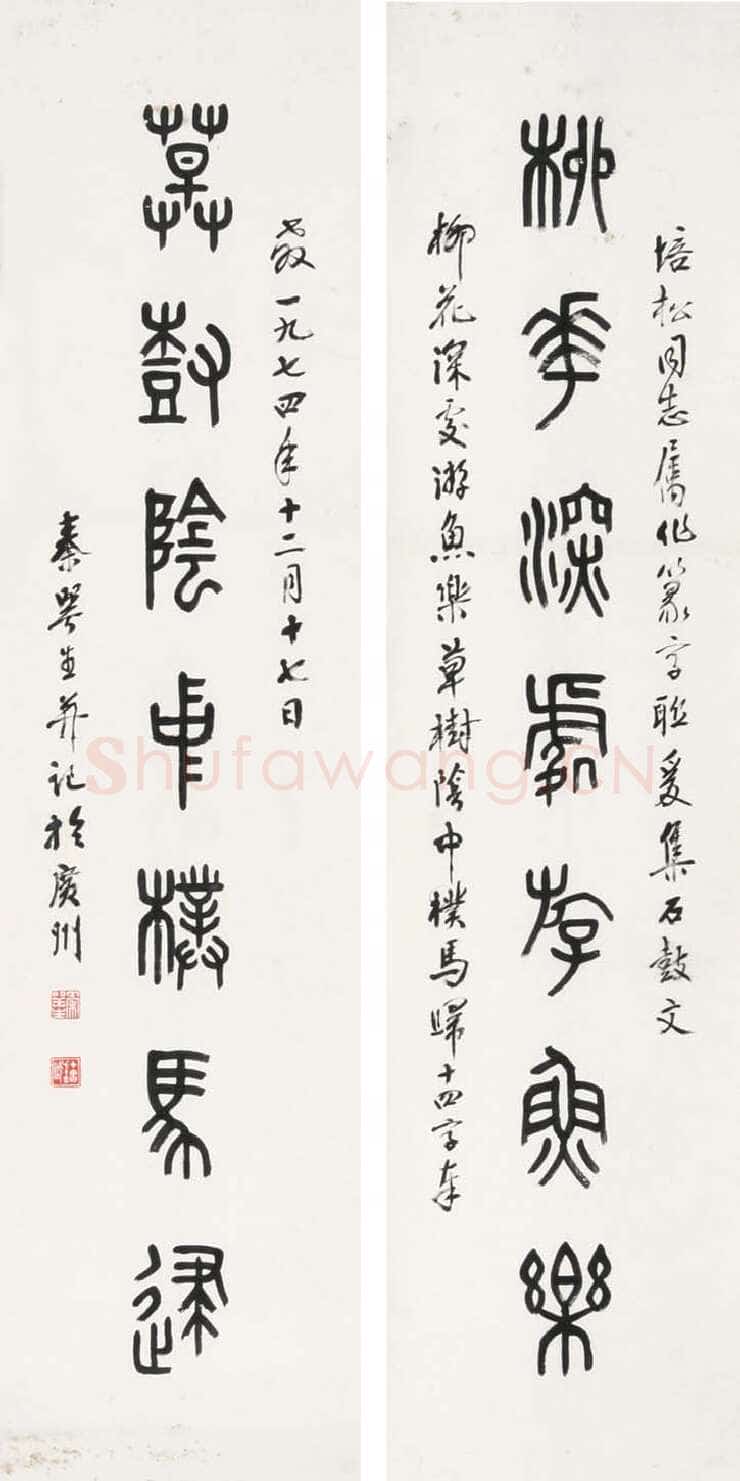 培松同志屬作篆字聯爰集石鼓文
柳華深處斿魚樂
柳花深處游魚樂草樹陰中樸馬歸十四字奉
教一九七四年十二月十七日
草樹陰中樸馬歸
秦咢生并記於廣州
Shufawang.CN